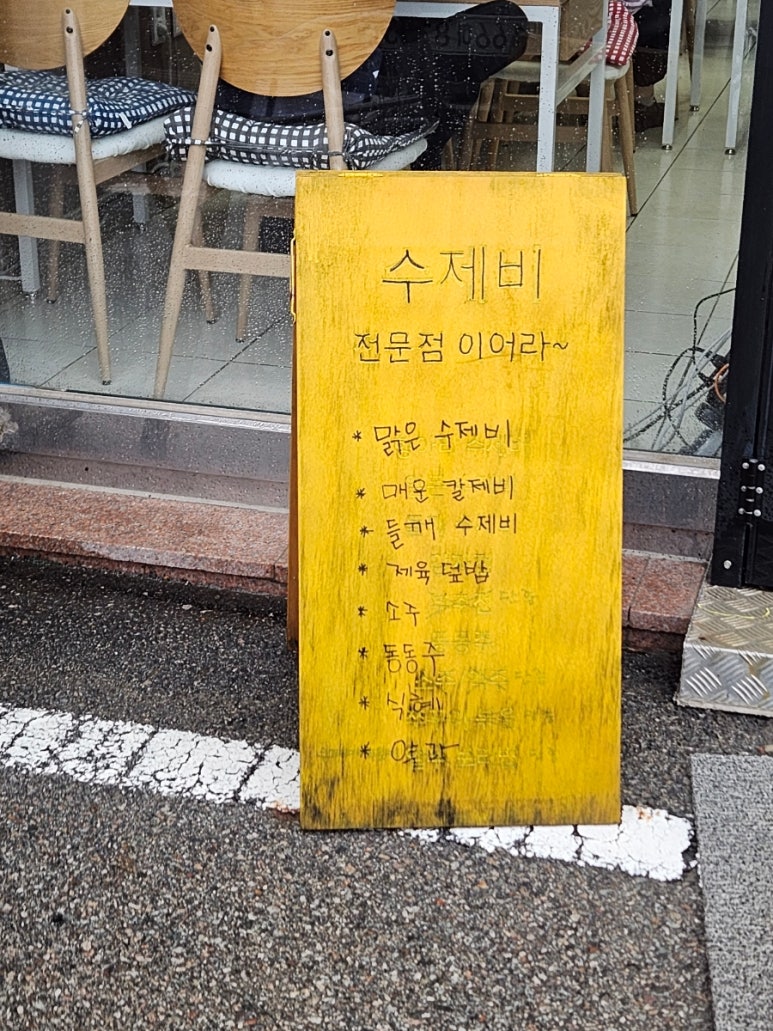 수제비
전문점 이어라~
* 맑은 수제비
* 매운 칼제비
* 들깨 수제비
* 제육덮밥
* 소주
* 동동주
* 식혜
* 약과